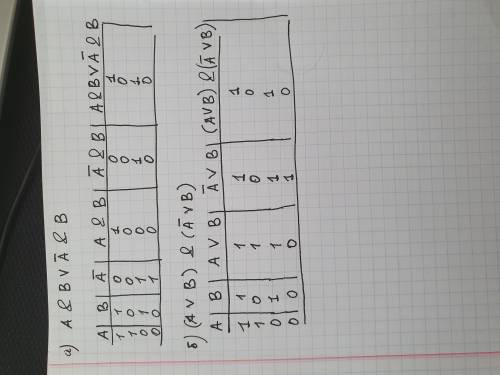 а) A & B V Ā & B
A | B | Ā | A & B | Ā & B | A & B V Ā & B
1 | 1 | 0 | 1 | 0 | 1
1 | 0 | 0 | 0 | 0 | 0
0 | 1 | 1 | 0 | 1 | 1
0 | 0 | 1 | 0 | 0 | 0
б) (A V B) & (Ā V B)
A | B | A V B | Ā V B | (A V B) & (Ā V B)
1 | 1 | 1 | 1 | 1
1 | 0 | 1 | 0 | 0
0 | 1 | 1 | 1 | 1
0 | 0 | 0 | 1 | 0